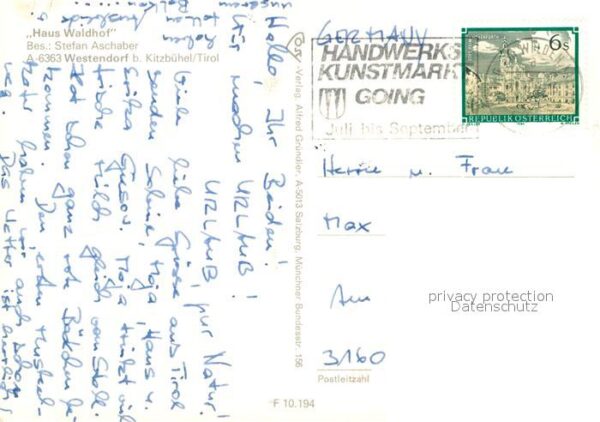 „Haus Waldhof"
Bes.: Stefan Aschaber
A-6363 Westendorf b. Kitzbühel/Tirol
Hallo, Ihr Beiden!
Wir machen URLAUB!
URLAUB, pur Natur!
Viele liebe Grüsse aus Tirol
senden Sabine, Maja, Hans u.
Maja trinkt viel
frische Milch gleich vom Stall.
Hat schon ganz rote Bäckchen be-
kommen. Den ersten Muskel-
kater haben wir auch schon
weg. Das Wetter ist herrlich!
Cosy-Verlag, Alfred Gründler, A-5013 Salzburg, Münchner Bundesstr. 156
F 10.194
GERMANY
HANDWERKS
KUNSTMARK
GOING
Juli bis September
6 S
REPUBLIK ÖSTERREICH
Herrn u. Frau
Max
Am
3160
Postleitzahl
privacy protection
Datenschutz